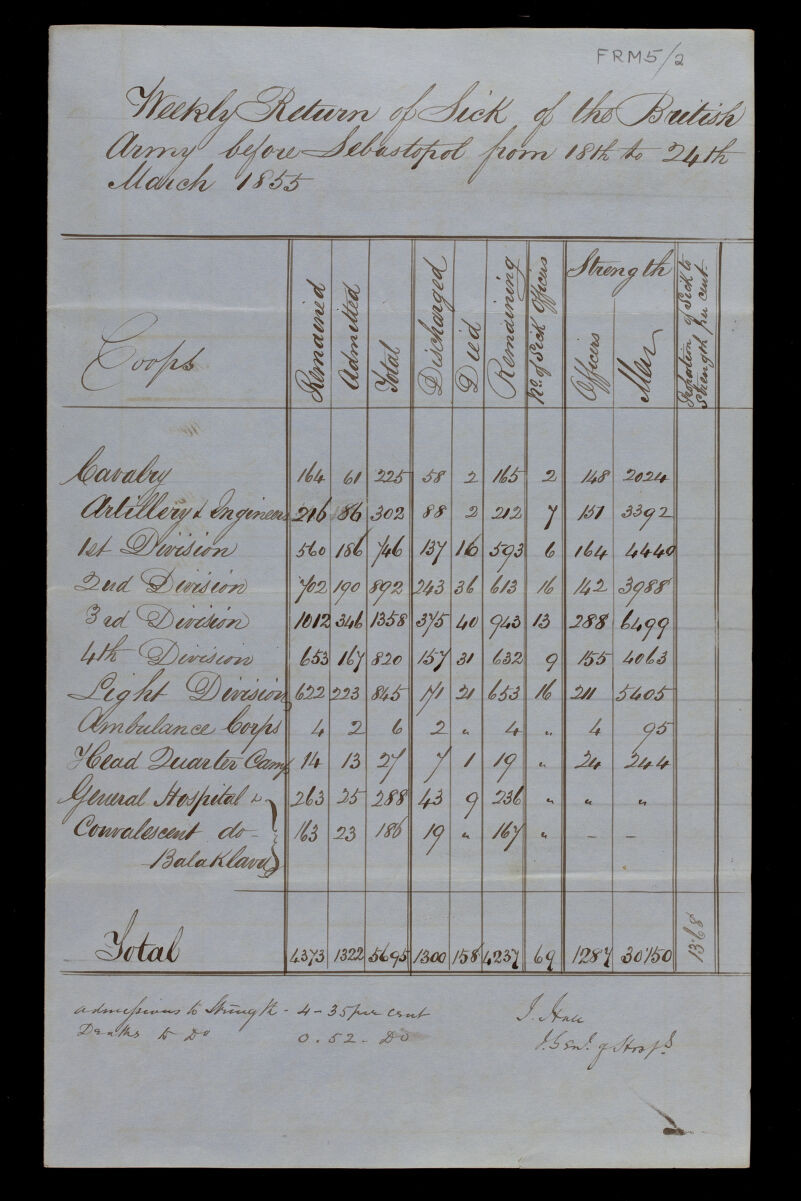 FRM5/2
Weekly Return of Sick of the British
Army before Sebastopol from 18th to 24th
March 1855
Corps Remained Admitted Total Discharged Died Remaining No. of Sick Officers Strength Officers Men Proportion of Sick to Strength per cent
Cavalry 164 61 225 58 2 165 2 148 2024
Artillery & Engineers 216 86 302 88 2 212 7 151 3392
1st Division 560 186 746 137 16 593 6 164 4440
2nd Division 702 190 892 243 36 613 16 142 3988
3rd Division 1012 346 1358 375 40 943 13 288 6499
4th Division 653 167 820 157 31 632 9 155 4063
Light Division 622 223 845 171 21 653 16 211 5405
Ambulance Corps 4 2 6 2 " 4 " 4 95
Head Quarter Camp 14 13 27 7 1 19 " 24 244
General Hospital & 263 25 288 43 9 236 " " "
Convalescent do - 163 23 186 19 " 167 " - -
Balaklava
Total 4373 1322 5695 1300 158 4237 69 1287 30150 13.68
Admissions to Strength - 4-35 per cent
Deaths to Do 0.52 - Do
J. Hall
I. Genl. of Hospls